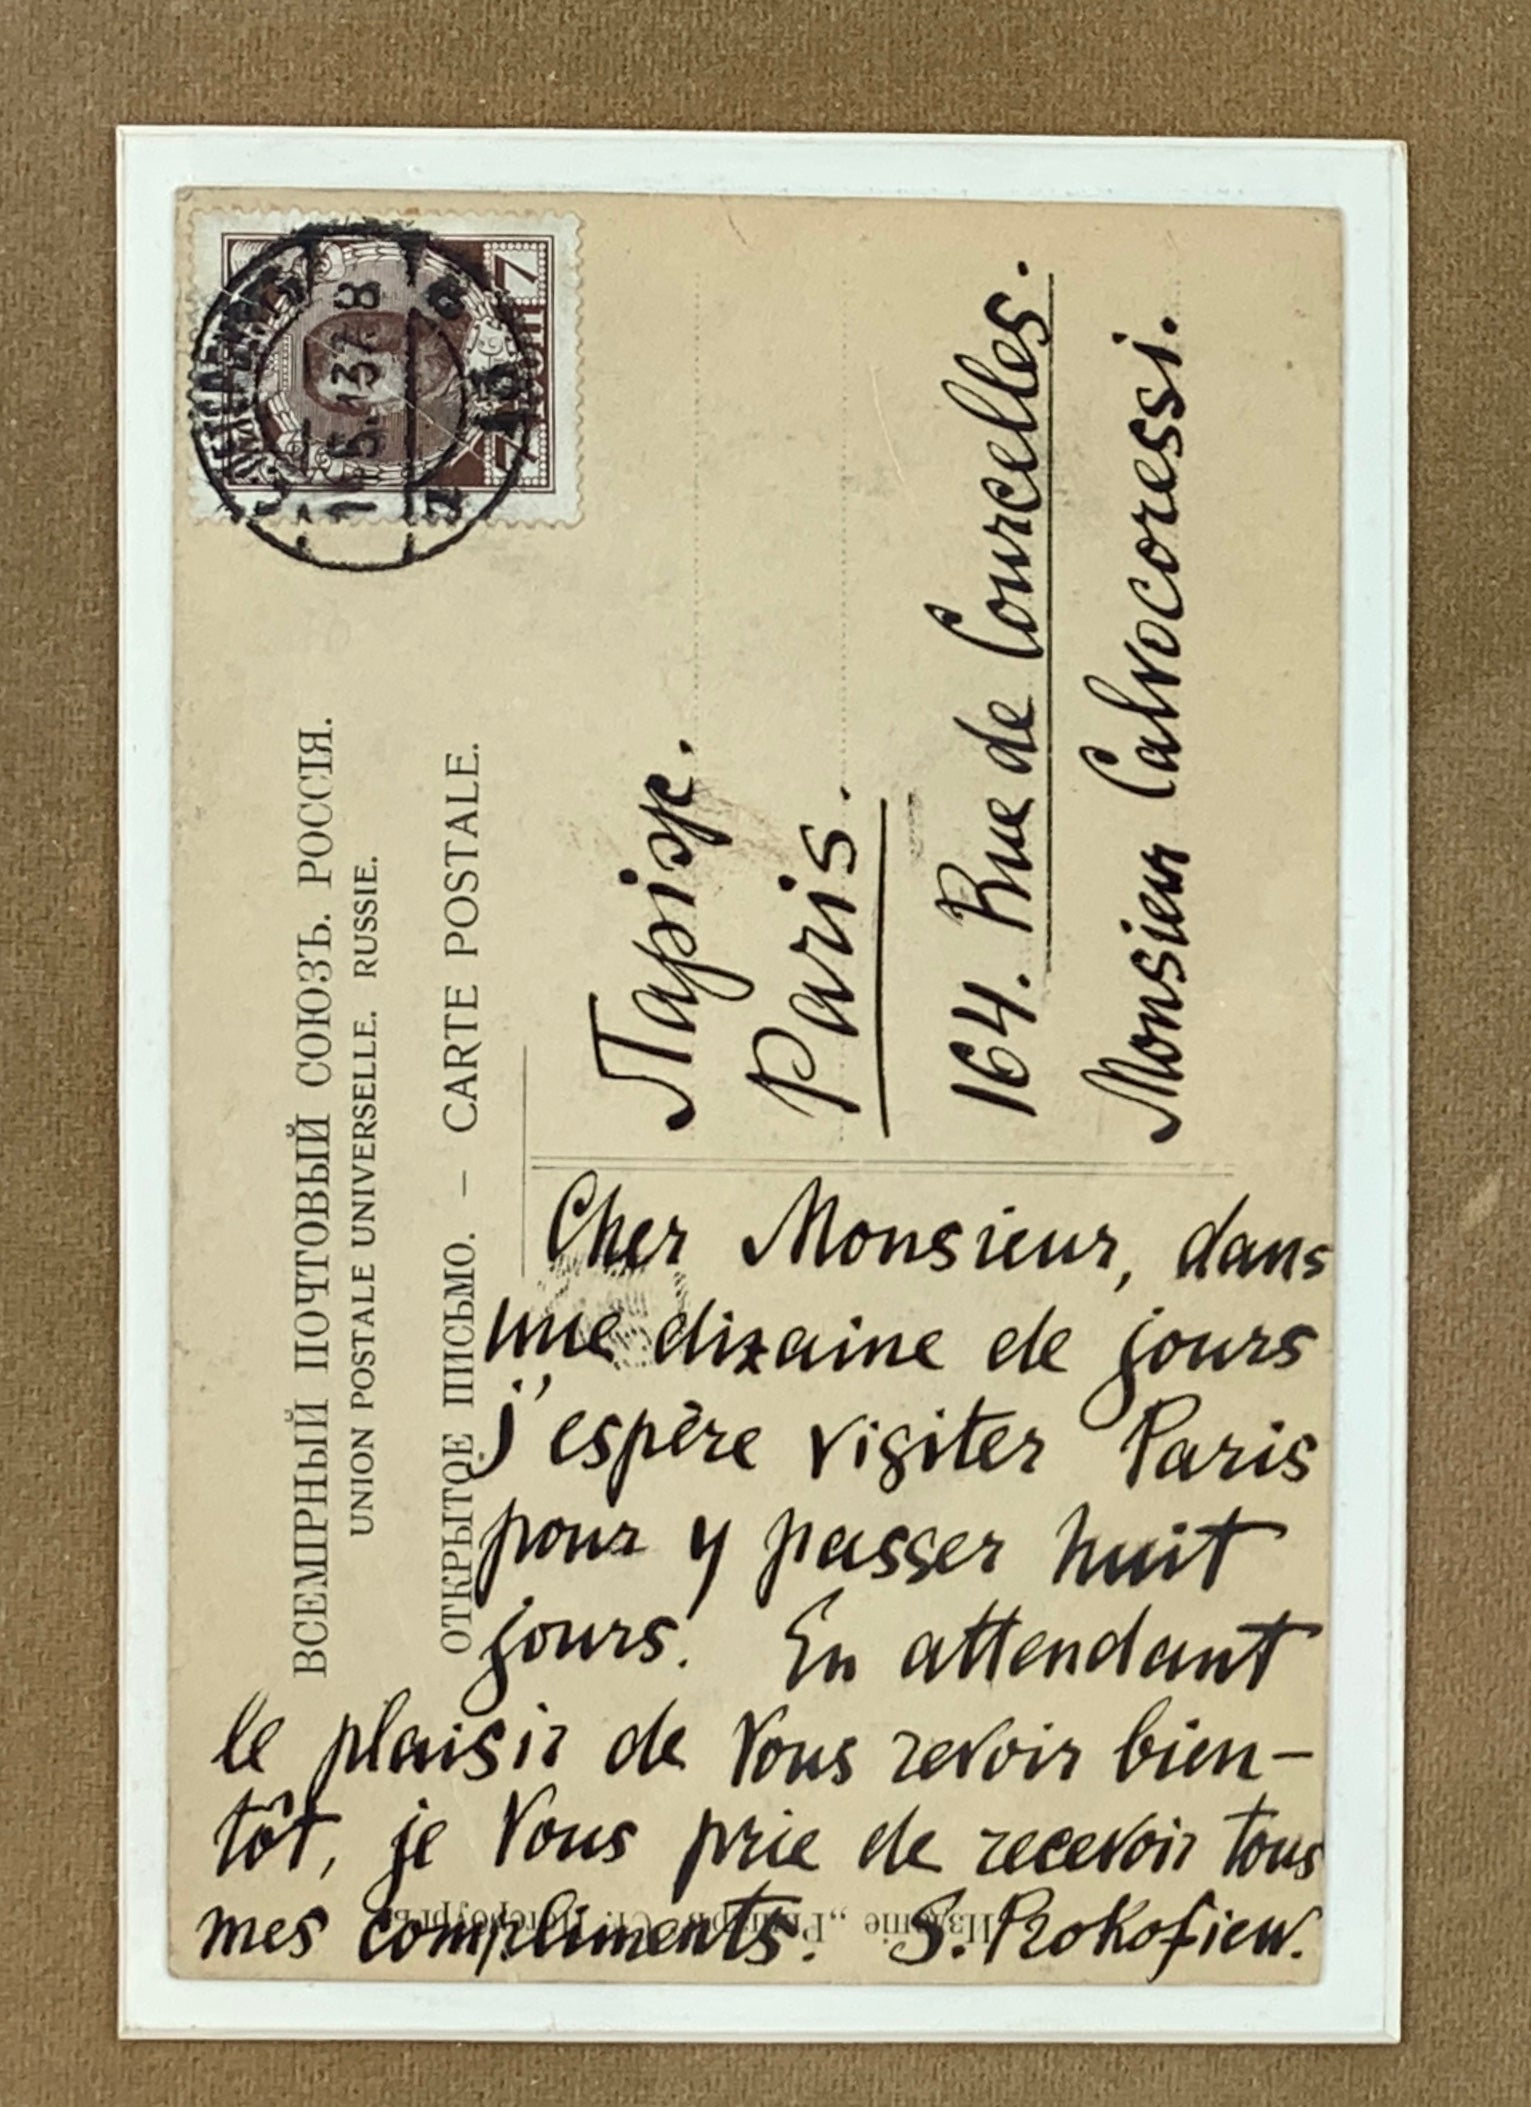 ВСЕМІРНЫЙ ПОЧТОВЫЙ СОЮЗЪ. РОССІЯ.
UNION POSTALE UNIVERSELLE. RUSSIE.
ОТКРЫТОЕ ПИСЬМО. – CARTE POSTALE.
7 7
15.1378
Парiж.
Paris.
164. Rue de Courcelles.
Monsieur Calvocoressi.
Cher Monsieur, dans
une dizaine de jours
j'espère visiter Paris
pour y passer huit
jours. En attendant
le plaisir de Vous revoir bien-
tôt, je Vous prie de recevoir tous
mes compliments. S. Prokofiew.
Изданіе